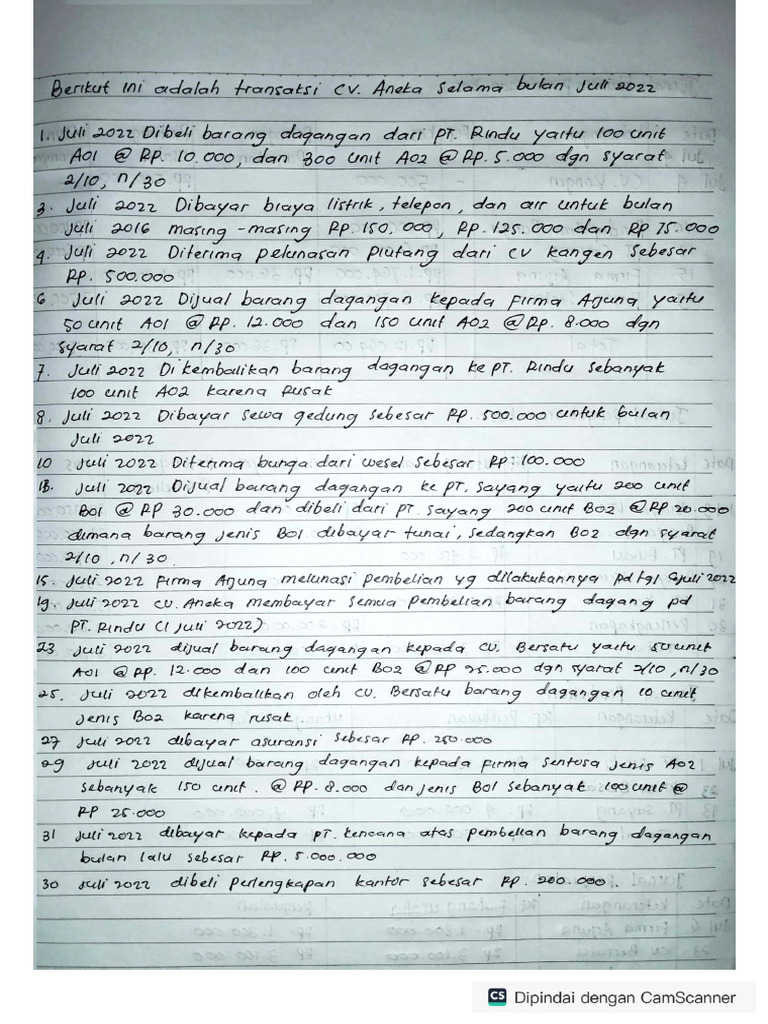 Berikut ini adalah transaksi CV. Aneka Selama bulan Juli 2022
1. Juli 2022 Dibeli barang dagangan dari PT. Rindu yaitu 100 unit
A01 @ RP. 10.000, dan 300 unit A02 @ RP. 5.000 dgn syarat
2/10, n/30
3. Juli 2022 Dibayar biaya listrik, telepon, dan air untuk bulan
Juli 2016 masing-masing RP. 150.000, RP. 125.000 dan RP 75.000
4. Juli 2022 Diterima pelunasan piutang dari CV kangen sebesar
RP. 500.000
6 Juli 2022 Dijual barang dagangan kepada Firma Agung, yaitu
50 unit A01 @ RP. 12.000 dan 150 unit A02 @ RP. 8.000 dgn
syarat 2/10, n/30
7. Juli 2022 Di kembalikan barang dagangan ke PT. Rindu sebanyak
100 unit A02 karena Rusak
8. Juli 2022 Dibayar sewa gedung sebesar RP. 500.000 untuk bulan
Juli 2022
10 Juli 2022 Diterima bunga dari wesel sebesar RP. 100.000
13. Juli 2022 Dijual barang dagangan ke PT. Sayang yaitu 200 unit
B01 @ RP 30.000 dan dibeli dari PT. Sayang 200 unit B02 @ RP 20.000
dimana barang jenis B01 dibayar tunai, sedangkan B02 dgn syarat
2/10, n/30.
15. Juli 2022 Firma Agung melunasi pembelian yg dilakukannya pd tgl 6 juli 2022
19. Juli 2022 CV. Aneka membayar semua pembelian barang dagang pd
PT. Rindu (1 Juli 2022)
23 Juli 2022 dijual barang dagangan kepada CV. Bersatu yaitu 50 unit
A01 @ RP. 12.000 dan 100 unit B02 @ RP 25.000 dgn syarat 2/10, n/30
25. Juli 2022 dikembalikan oleh CV. Bersatu barang dagangan 10 unit
jenis B02 karena rusak.
27 Juli 2022 dibayar asuransi sebesar RP. 250.000
29 Juli 2022 dijual barang dagangan kepada Firma Sentosa jenis A02
sebanyak 150 unit. @ RP. 8.000 dan jenis B01 sebanyak 100 unit @
RP 25.000
31 Juli 2022 dibayar kepada PT. Kencana atas pembelian barang dagangan
bulan lalu sebesar RP. 5.000.000
30 Juli 2022 dibeli perlengkapan kantor sebesar RP. 200.000.
CS Dipindai dengan CamScanner